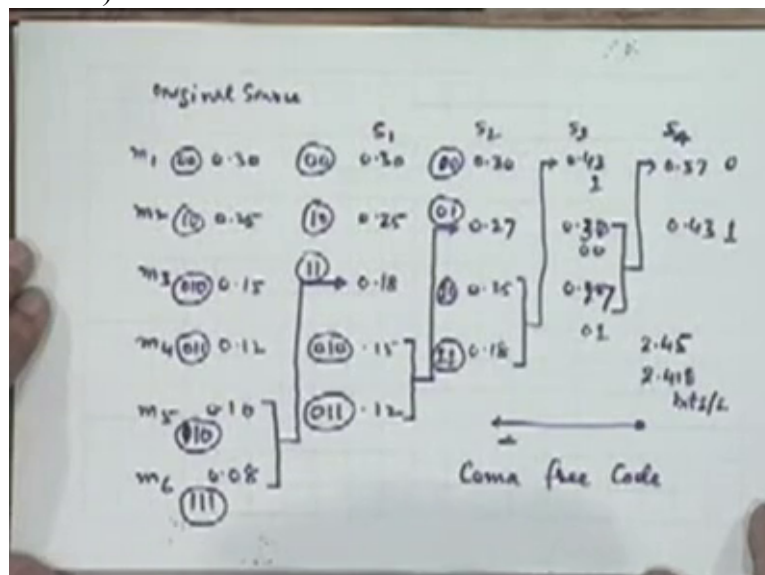 original Source
S1 S2 S3 S4
m1 00 0.30 00 0.30 00 0.30 0.43 0.57 0
1
m2 10 0.25 10 0.25 01 0.27 0.30 0.43 1
00
m3 010 0.15 11 0.18 10 0.25 0.27
01
m4 011 0.12 010 .15 11 0.18 2.45
m5 0.10 011 .12 2.418
110 bits/
m6 0.08 Coma free Code
111